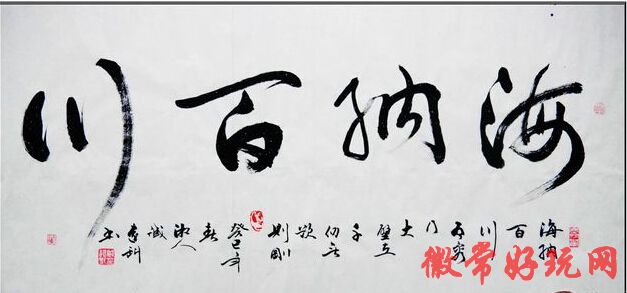 海纳百川
海纳
百
川
有容
乃
大
壁立
千
仞无
欲
则刚
癸巳年
春
湘人
书
徽常好玩网